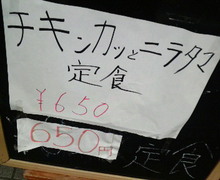 チキンカツとニラタマ
定食
¥650
650円
定食